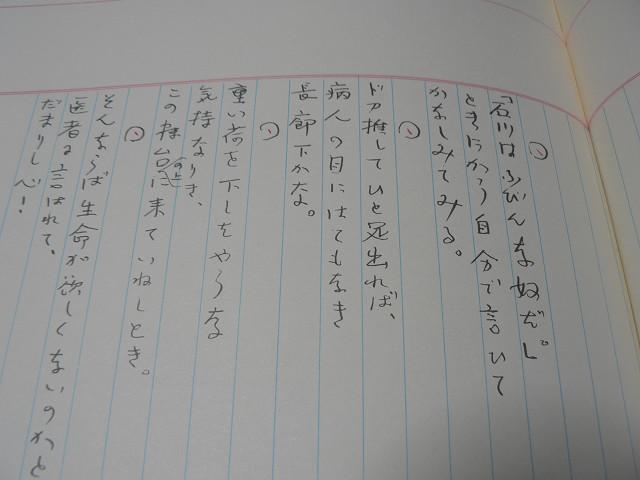 「石川はふびんな奴だ。」
ときにかう自分で言ひて
かなしみてみる。
ドア推してひと足出れば、
病人の目にはてもなき
長廊下かな。
重い荷を下したやうな
気持なりき、
この寝台の上に来ていねしとき。
そんならば生命が欲しくないのかと
医者に言はれて、
だまりし心!